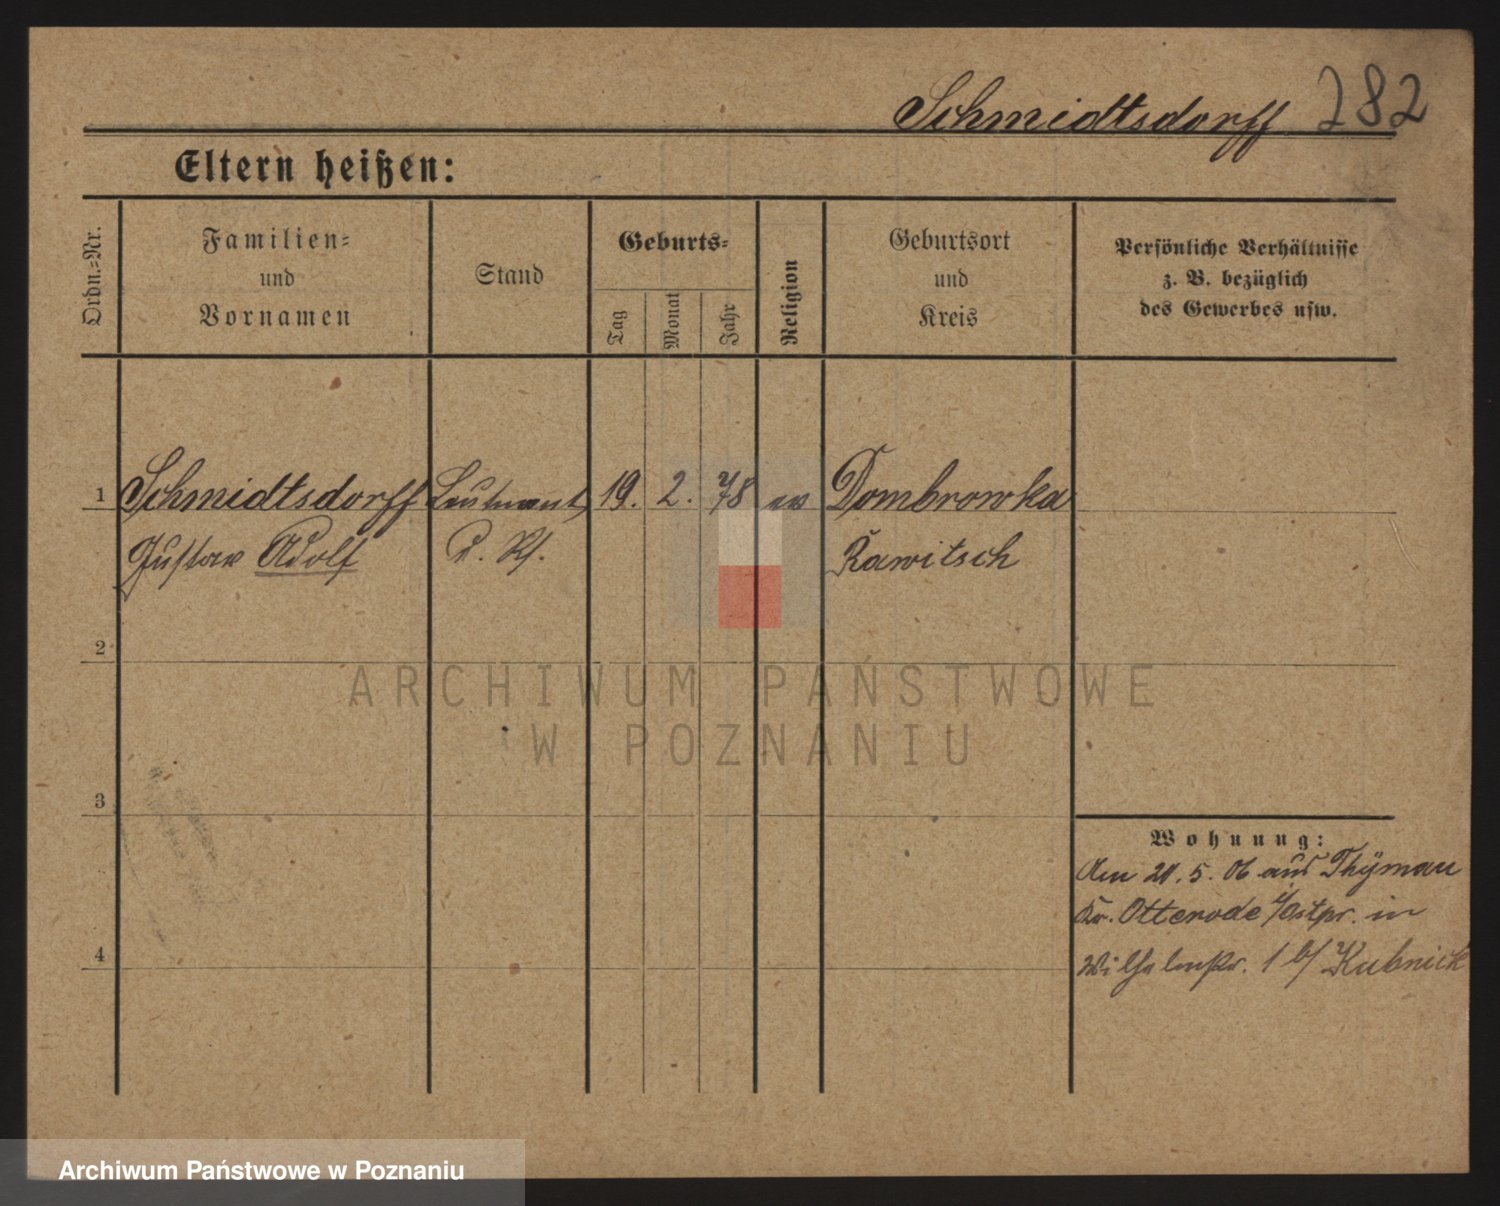 Schmidtsdorff 282
Eltern heißen:
Ordn.-Nr.
Familien-
und
Vornamen
Stand
Geburts-
Tag
Monat
Jahr
Religion
Geburtsort
und
Kreis
Persönliche Verhältnisse
z. B. bezüglich
des Gewerbes usw.
1 Schmidtsdorff Leutnant 19. 2. 78 ev Dombrowka
Gustav Adolf d. Rs. Rawitsch
2
ARCHIWUM PAŃSTWOWE
W POZNANIU
3
Wohnung:
Am 21.5.06 aus Thÿmau
Kr. Osterode i/Ostpr. in
4 Wilhelmstr. 1 b/ Kubnick
Archiwum Państwowe w Poznaniu